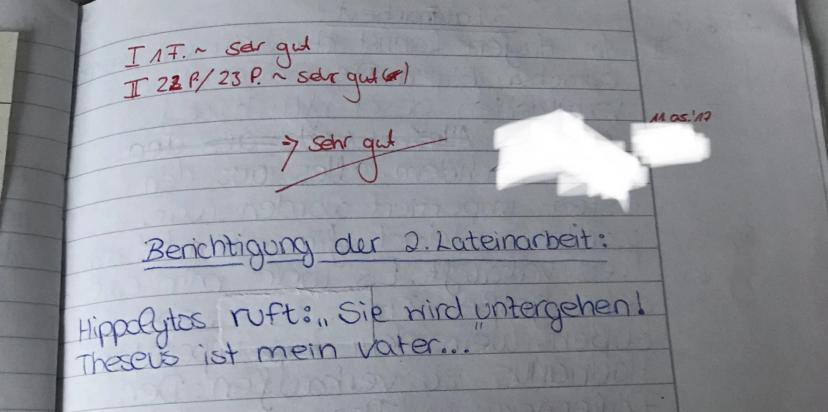 I 1F. ~ sehr gut
II 22 P/23 P. ~ sehr gut (-)
→ sehr gut
11.05.'17
Berichtigung der 2. Lateinarbeit:
Hippolytos ruft: „Sie wird untergehen!"
Theseus ist mein Vater...